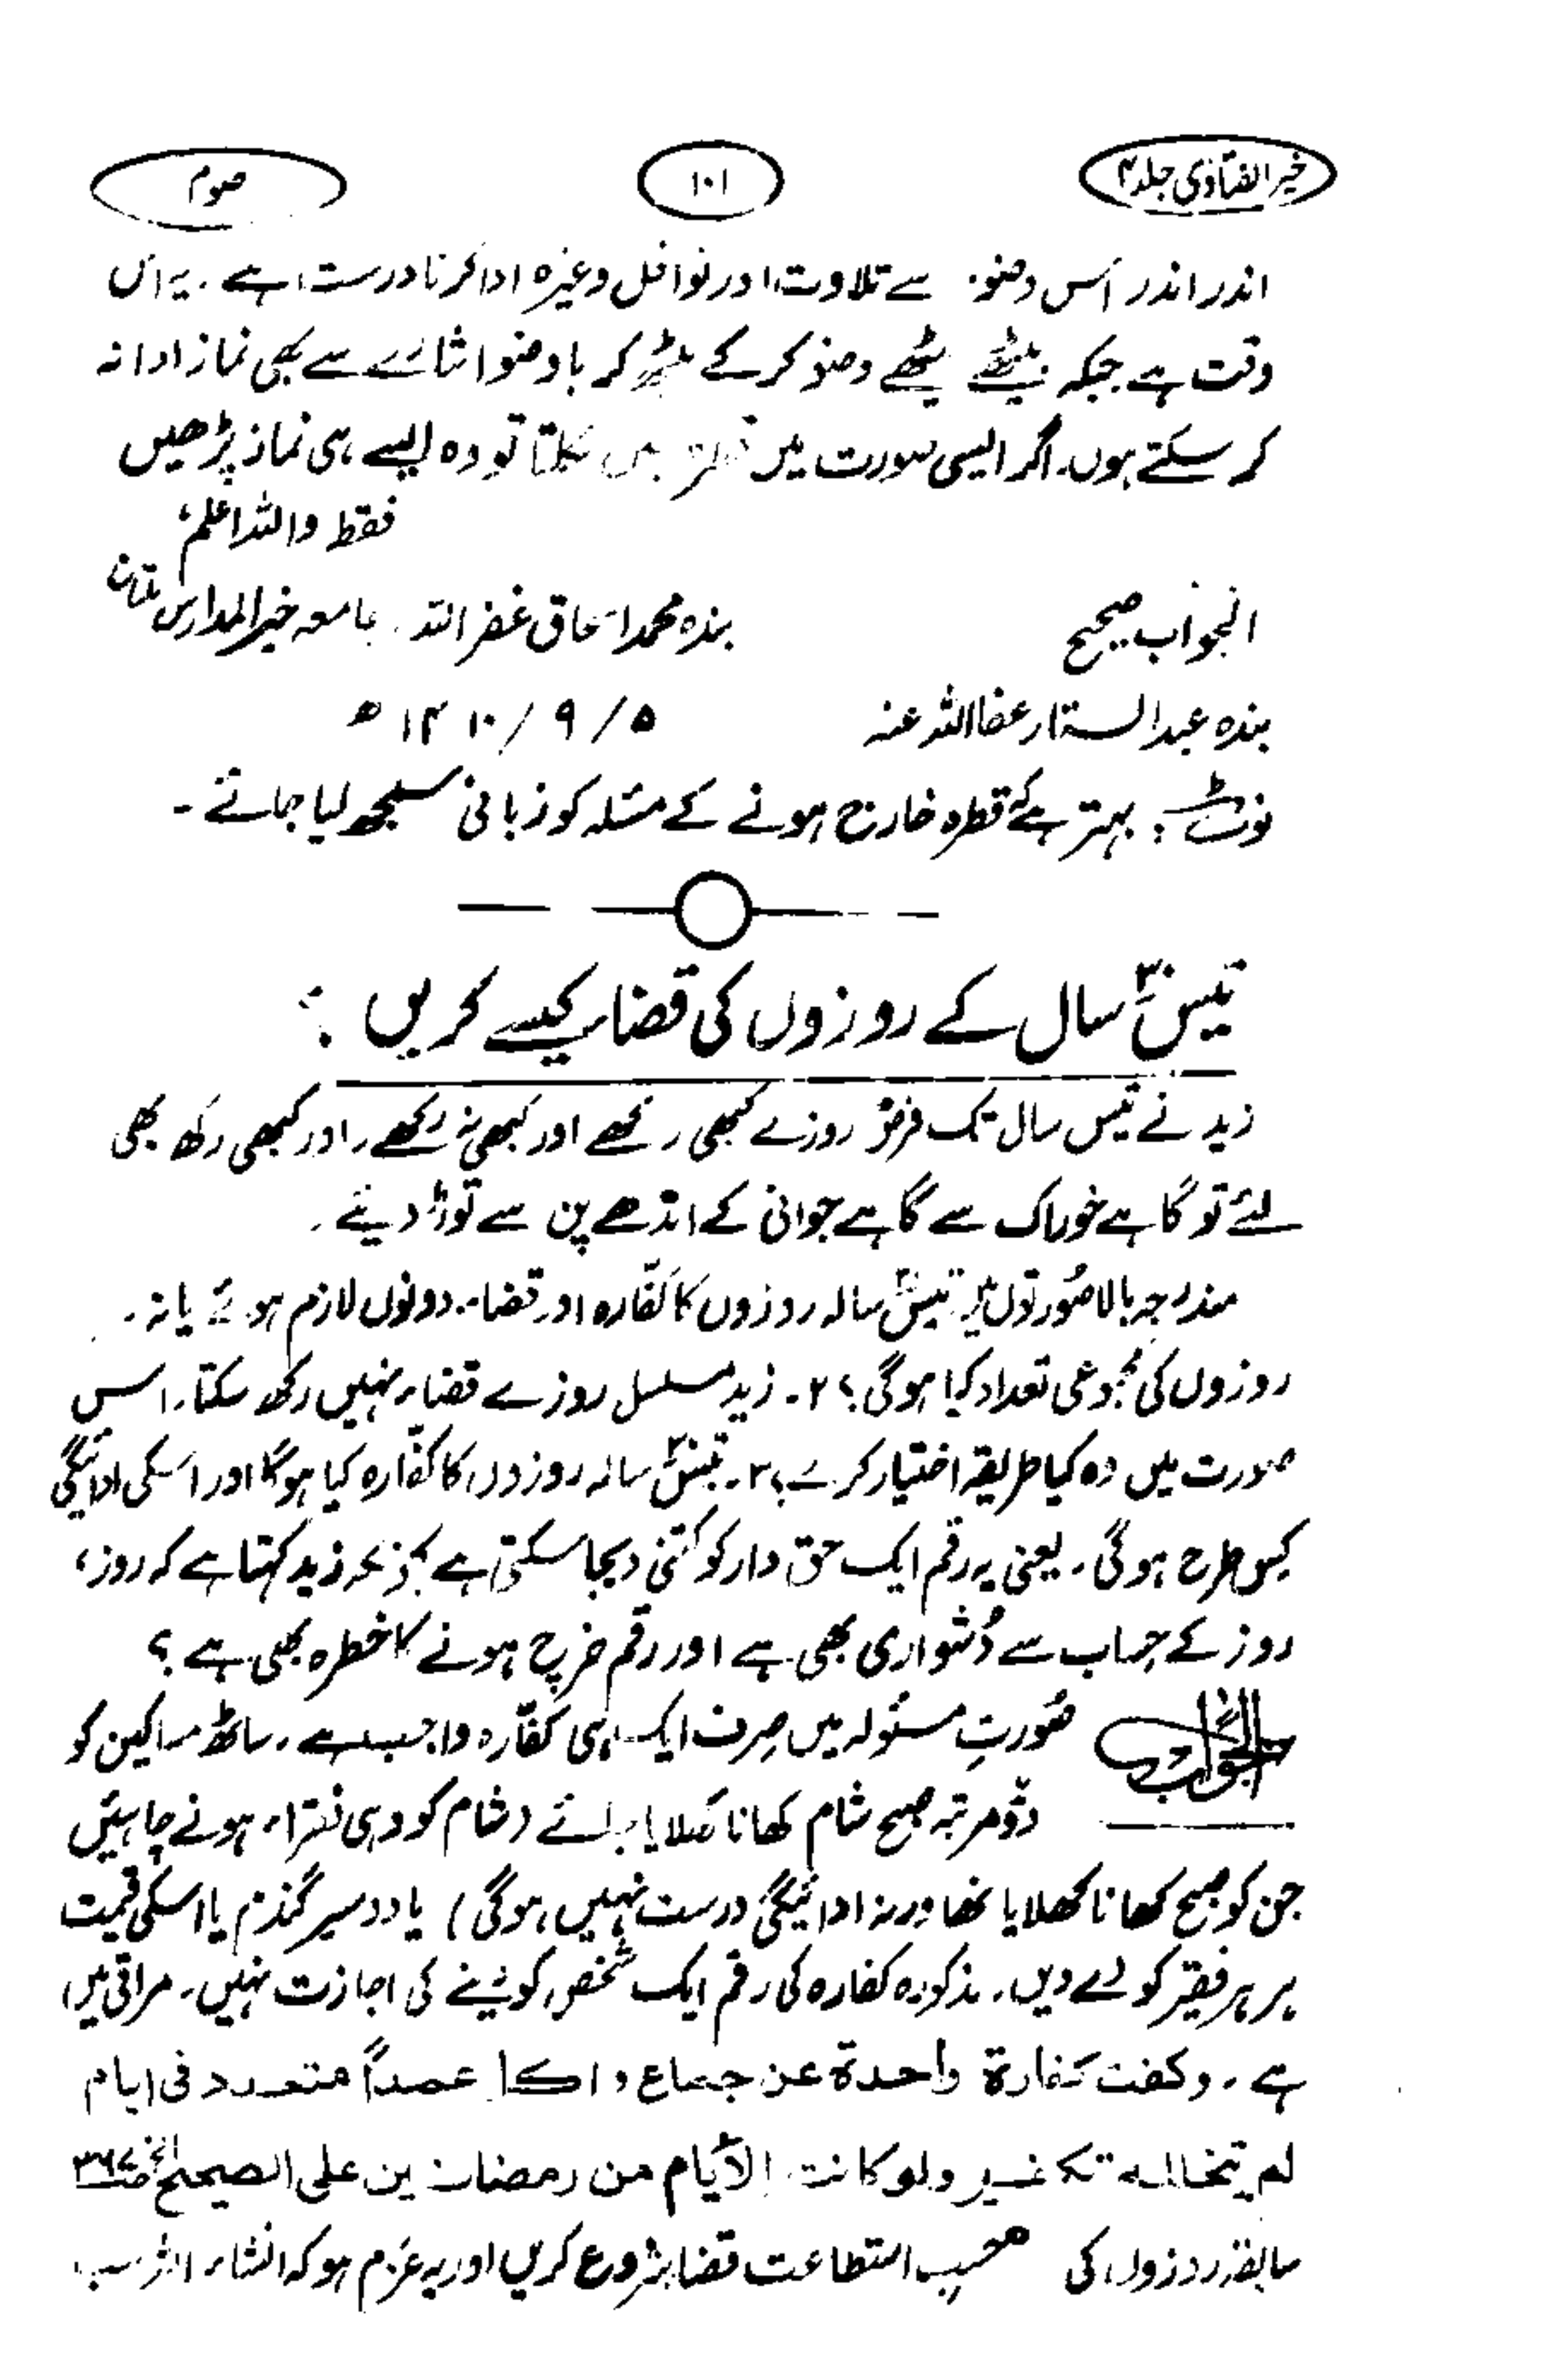 خیر الفتاوی جلد ۴
۱۰۱
صوم
اندر اندر اس وضوء سے تلاوت اور نوافل وغیرہ ادا کرنا درست ہے۔ یہ اس
وقت ہے جبکہ بیٹھے بیٹھے وضو کر کے بیٹھ کر باوضو اشارے سے بھی نماز ادا نہ
کر سکتے ہوں۔ اگر ایسی صورت میں قطرہ نہیں نکلتا تو وہ ایسے ہی نماز پڑھیں
فقط واللہ اعلم،
الجواب صحیح
بندہ محمد اسحاق غفر اللہ۔ جامعہ خیر المدارس ملتان
بندہ عبد الستار عفا اللہ عنہ
۵ / ۹ / ۱۴۱۰ ھ
نوٹ: بہتر ہے کہ قطرہ خارج ہونے کے مسئلہ کو زبانی سمجھ لیا جائے۔
تیس ۳۰ سال کے روزوں کی قضاء کیسے کریں ؟
زید نے تیس سال تک فرض روزے کبھی رکھے اور کبھی نہ رکھے، اور کبھی رکھ بھی
لئے تو گاہے خوراک سے گاہے جوانی کے اندھے پن سے توڑ دیئے۔
مندرجہ بالا صورتوں میں تیس سالہ روزوں کا کفارہ اور قضاء دونوں لازم ہوئے یا نہ۔
روزوں کی مجموعی تعداد کیا ہوگی؟ ۲۔ زید مسلسل روزے قضاء نہیں رکھ سکتا۔ اس
صورت میں وہ کیا طریقہ اختیار کرے؟ ۳۔ تیس ۳۰ سالہ روزوں کا کفارہ کیا ہوگا اور اسکی ادائیگی
کس طرح ہوگی۔ یعنی یہ رقم ایک حق دار کو کتنی دیجا سکتی ہے کیونکہ زید کہتا ہے کہ روز،
روز کے حساب سے دُشواری بھی ہے اور رقم خرچ ہونے کا خطرہ بھی ہے؟
الجواب صُورتِ مسئولہ میں صِرف ایک ہی کفّارہ واجب ہے۔ ساٹھ مساکین کو
دو مرتبہ صبح شام کھانا کھلایا جائے (شام کو وہی فقراء ہونے چاہئیں
جن کو صبح کھانا کھلایا تھا ورنہ ادائیگی درست نہیں ہوگی) یا دو سیر گندم یا اسکی قیمت
ہر ہر فقیر کو دے دیں۔ مذکورہ کفارہ کی رقم ایک شخص کو دینے کی اجازت نہیں۔ مراقی میں
ہے۔ وكفت كفارة واحدة عن جماع واكل عمداً متعدد فی ایام
لم یتخلله تكفیر ولو كانت الأیّام من رمضانین علی الصحیح الخ ص۳۶۷
سابقہ روزوں کی حسبِ استطاعت قضا شروع کریں اور یہ عزم ہو کہ انشاء اللہ سب